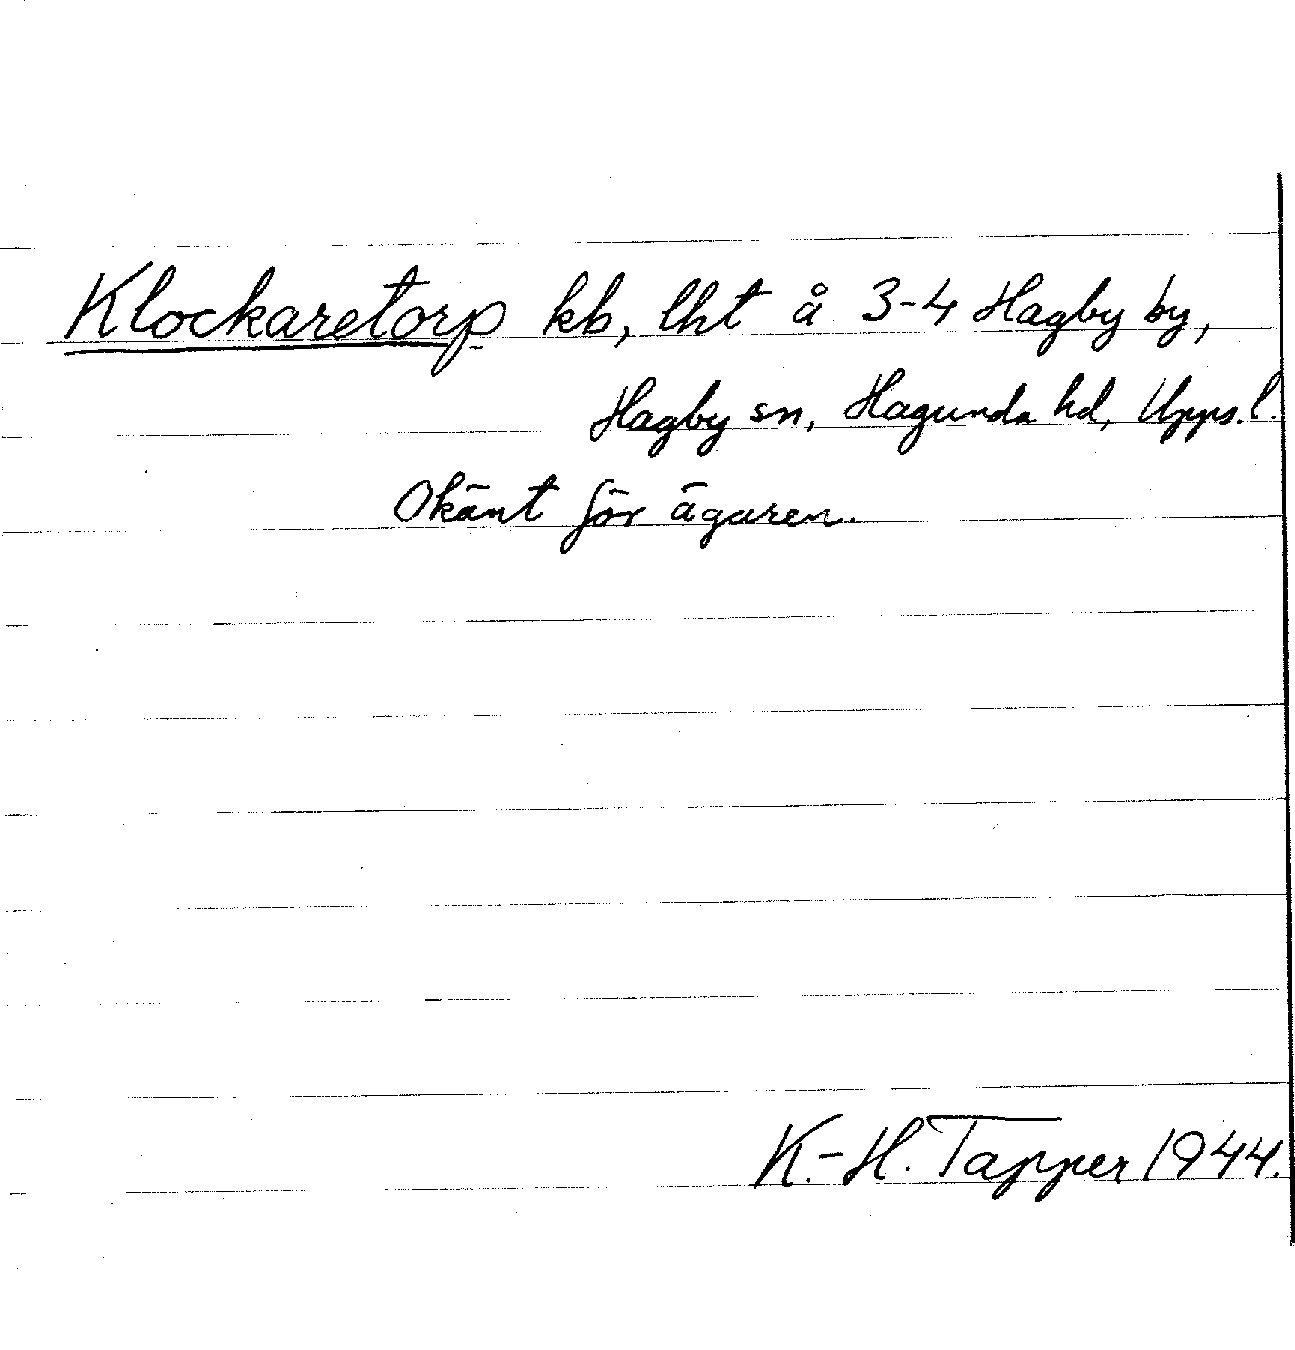 Klockaretorp kb, lht å 3-4 Hagby by,
Hagby sn, Hagunda hd, Upps. l.
Okänt för ägaren.
K.-H. Tapper 1944.